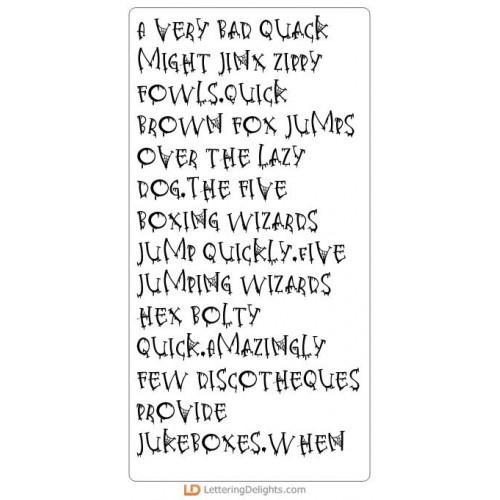 A VERY BAD QUACK
MIGHT JINX ZIPPY
FOWLS.QUICK
BROWN FOX JUMPS
OVER THE LAZY
DOG.THE FIVE
BOXING WIZARDS
JUMP QUICKLY.FIVE
JUMPING WIZARDS
HEX BOLTY
QUICK.AMAZINGLY
FEW DISCOTHEQUES
PROVIDE
JUKEBOXES.WHEN
LD LetteringDelights.com